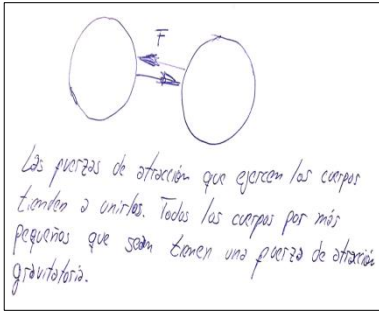 F
Las fuerzas de atracción que ejercen los cuerpos
tienden a unirlos. Todos los cuerpos por más
pequeños que sean tienen una fuerza de atracción
gravitatoria.